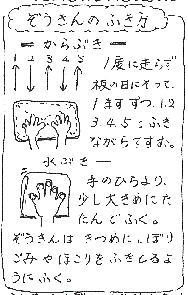 ぞうきんのふき方
ーからぶきー
1 2 3 4 5
1度に走らず
板の目にそって、
1ますずつ、1.2
3.4.5とふき
ながらですす。
水ぶきー
手のひらより、
少し大きめにた
たんでふく。
ぞうきんはきつめにしぼり
ごみやほこりをふきとるよ
うにふく。